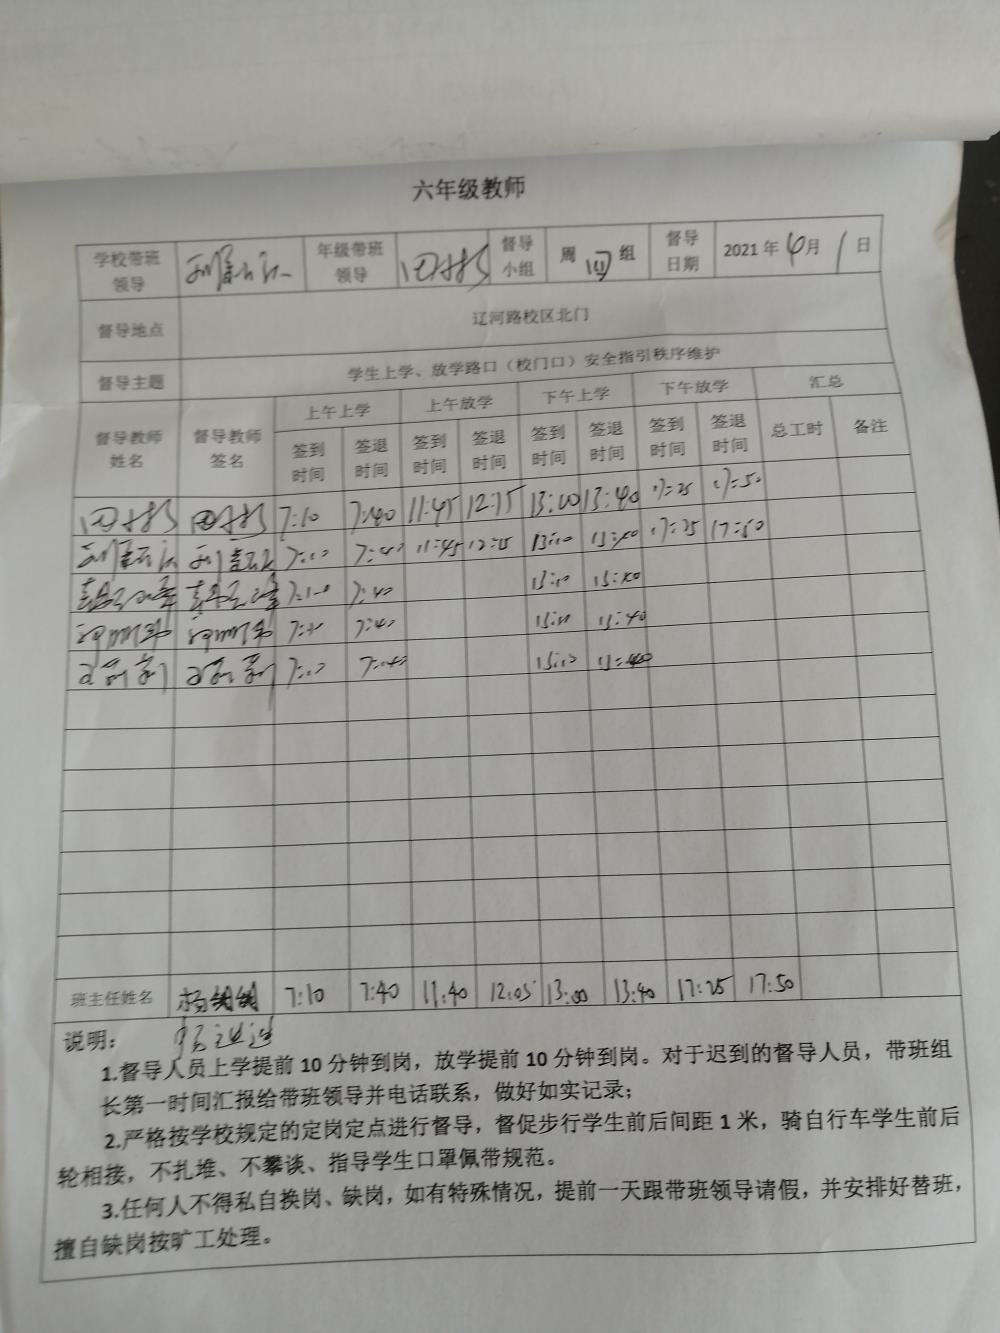 六年级教师
学校带班领导 年级带班领导 督导小组 周四组 督导日期 2021年4月1日
督导地点 辽河路校区北门
督导主题 学生上学、放学路口（校门口）安全指引秩序维护
督导教师姓名 督导教师签名 上午上学 上午放学 下午上学 下午放学 汇总
签到时间 签退时间 签到时间 签退时间 签到时间 签退时间 签到时间 签退时间 总工时 备注
7:10 7:40 11:45 12:15 13:00 13:40 17:25 17:50
7:40 11:45 12:15 17:25 17:50
7:40
7:40 13:40
7:40 13:40
班主任姓名 7:10 7:40 11:40 12:05 13:00 13:40 17:25 17:50
说明：
1.督导人员上学提前10分钟到岗，放学提前10分钟到岗。对于迟到的督导人员，带班组
长第一时间汇报给带班领导并电话联系，做好如实记录；
2.严格按学校规定的定岗定点进行督导，督促步行学生前后间距1米，骑自行车学生前后
轮相接，不扎堆、不攀谈、指导学生口罩佩带规范。
3.任何人不得私自换岗、缺岗，如有特殊情况，提前一天跟带班领导请假，并安排好替班，
擅自缺岗按旷工处理。